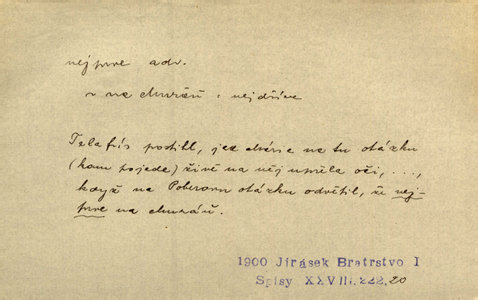 nejprve adv.
v na chvíli : nejdříve
Telafús postihl, jak chvíle na tu otázku
(kam pojede) živě na něj upřela oči, ...,
když na Poberovu otázku odvětil, že nej-
prve na
1900 Jirásek Bratrstvo I
Spisy XXVIII.222.20